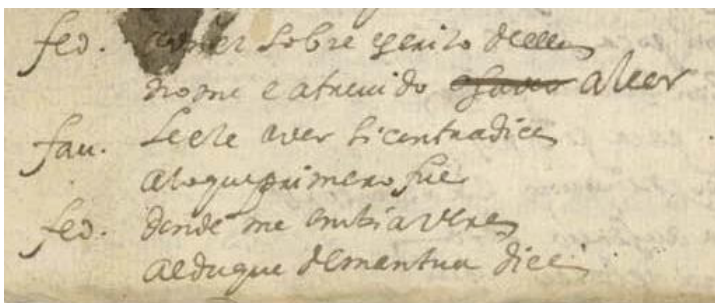 fed. sobre escrito
nome e atreuido a leer
fau. leele aver sicontradice
aloqueprimero fue
fed. donde me embia
alduque demantua dice